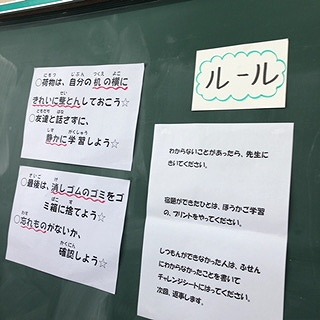 ルール
○荷物は、自分の机の横に
きれいに整とんしておこう☆
○友達と話さずに、
静かに学習しよう☆
○最後は、消しゴムのゴミをゴ
ミ箱に捨てよう☆
○忘れものがないか、
確認しよう☆
わからないことがあったら、先生に
きいてください。
宿題ができたひとは、ほうかご学習
の、プリントをやってください。
しつもんができなかった人は、ふせん
にわからなかったことを書いて
チャレンジシートにはってください。
次回、返事します。